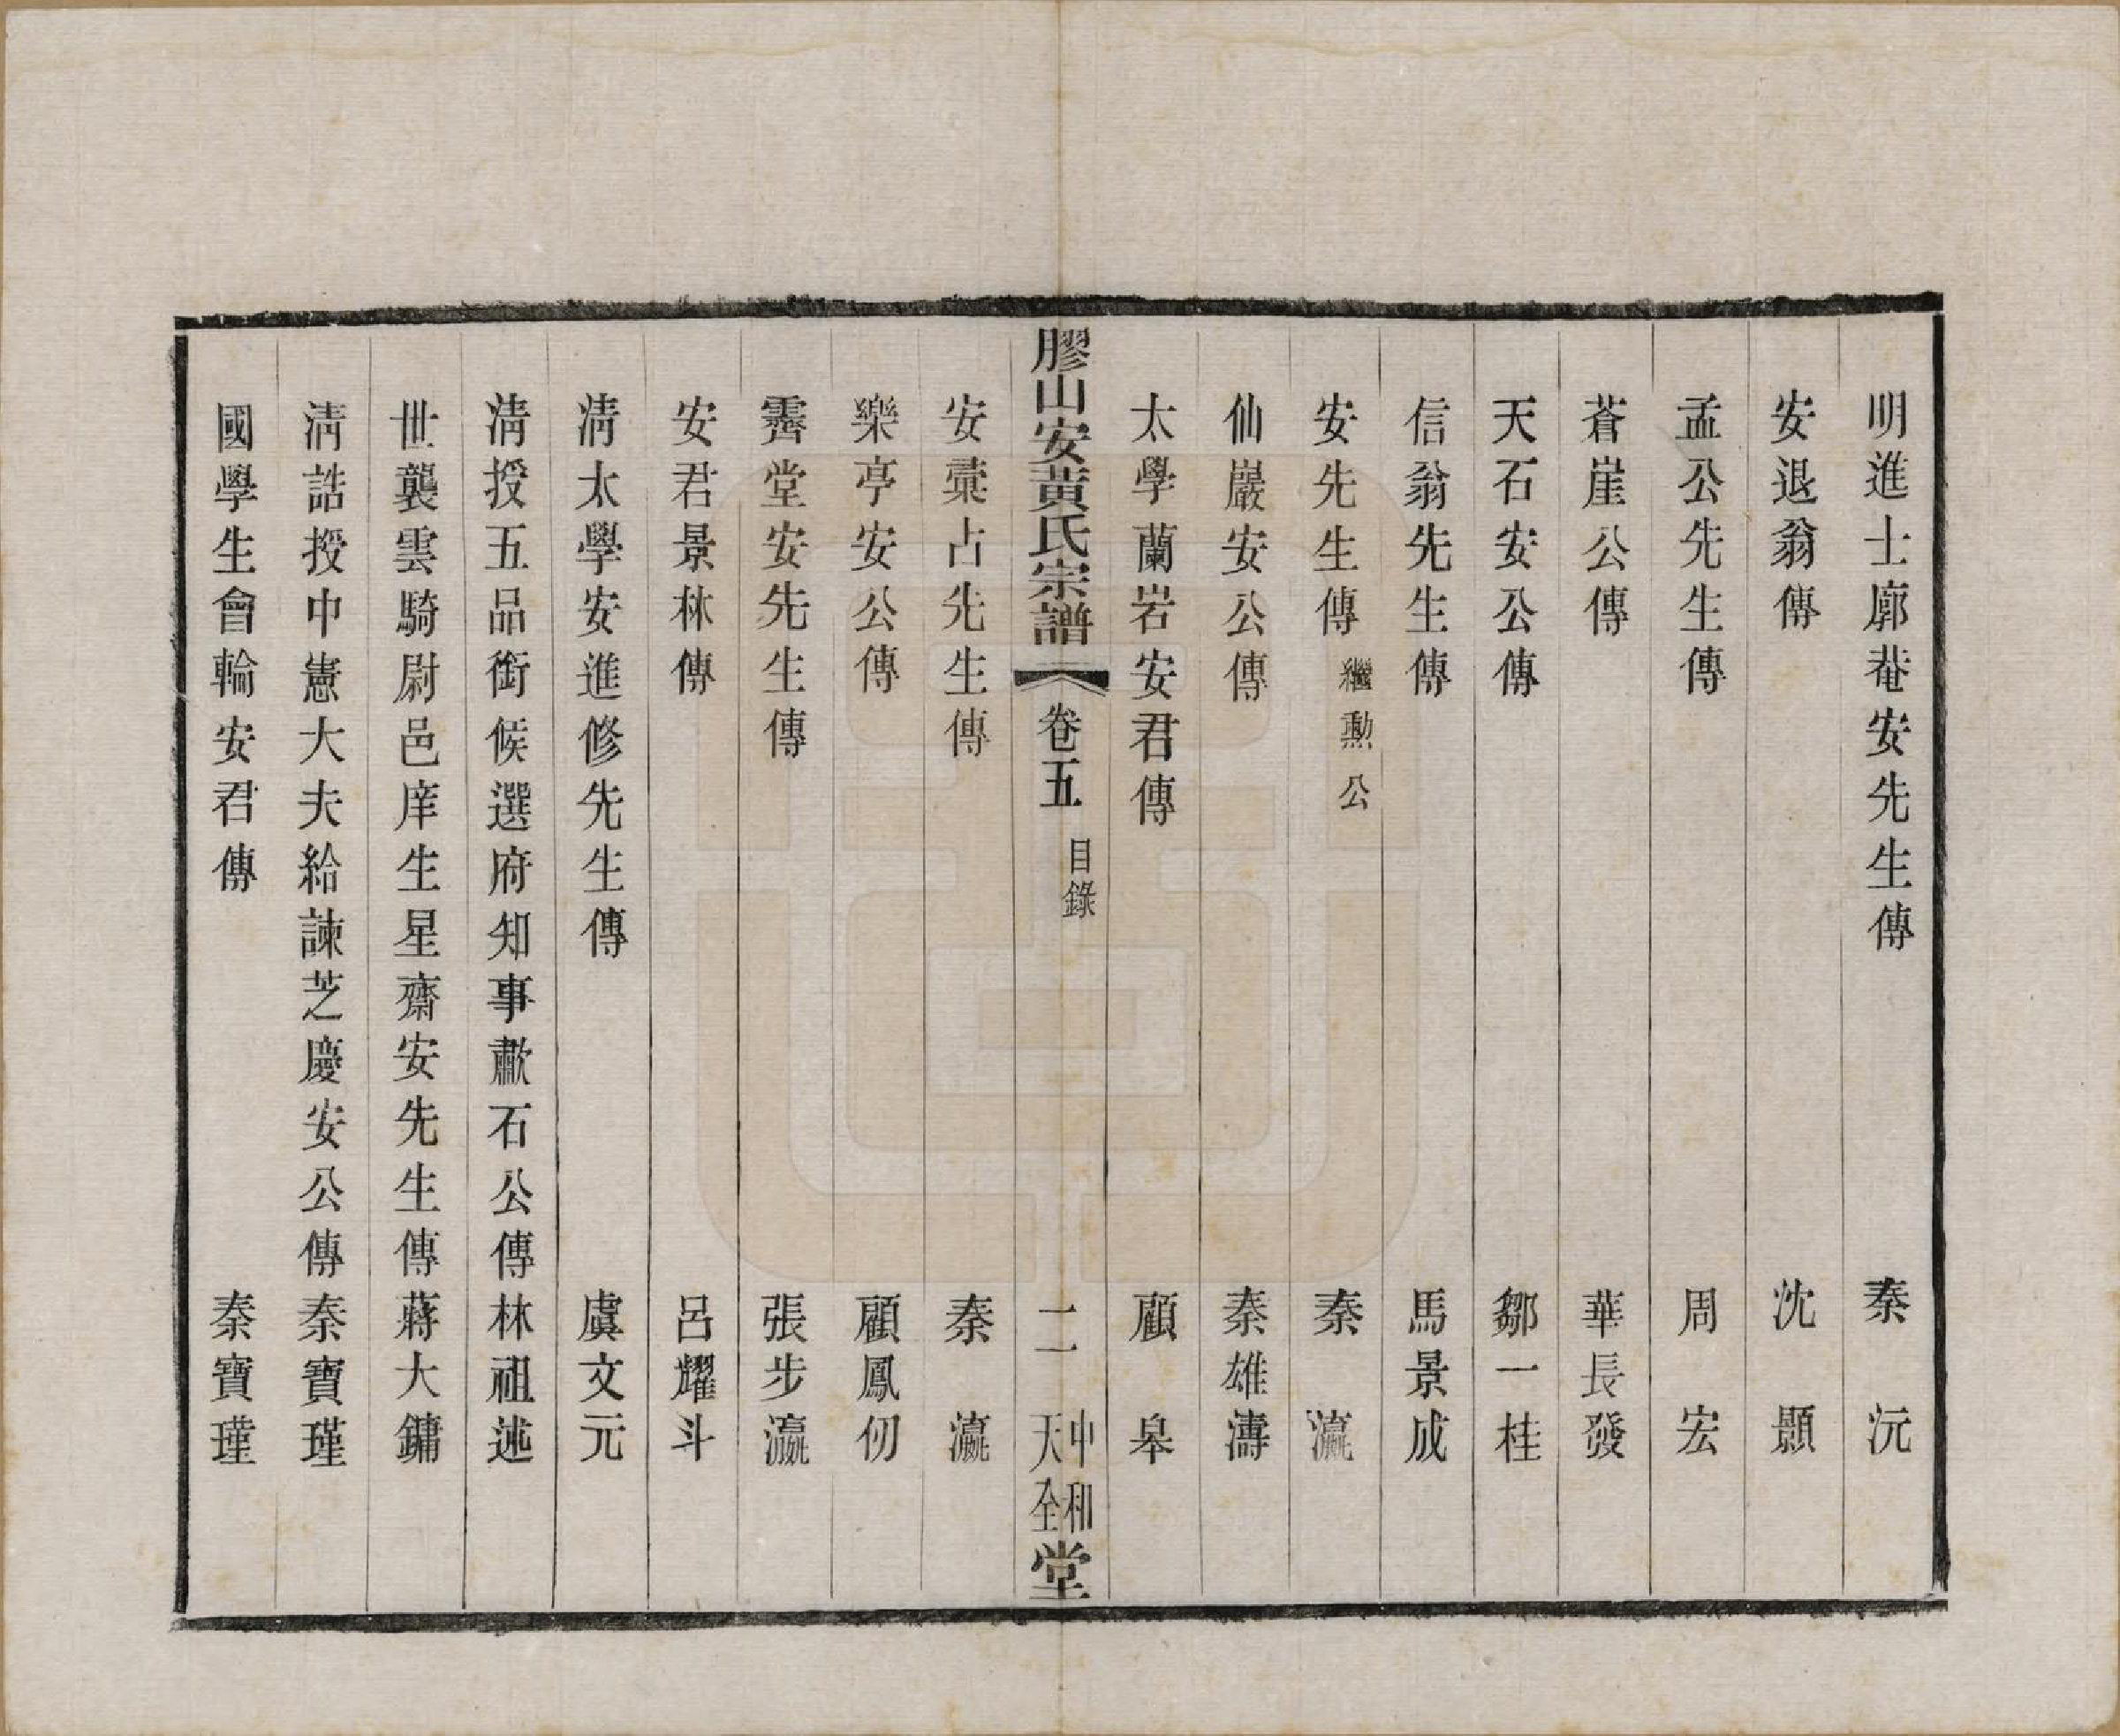 明進士廓菴安先生傳 秦沅
安退翁傳 沈顥
孟公先生傳 周宏
蒼崖公傳 華長發
天石安公傳 鄒一桂
信翁先生傳 馬景成
安先生傳 繼勳公 秦瀛
仙巖安公傳 秦雄濤
太學蘭岩安君傳 顧臯
膠山安黃氏宗譜 卷五 目錄 二 中和 天全 堂
安橐占先生傳 秦瀛
樂亭安公傳 顧鳳仞
霽堂安先生傳 張步瀛
安君景林傳 呂耀斗
清太學安進修先生傳 虞文元
清授五品銜候選府知事歗石公傳 林祖述
世襲雲騎尉邑庠生星齋安先生傳 蔣大鏞
清誥授中憲大夫給諫芝慶安公傳 秦寶瑾
國學生會輪安君傳 秦寶瑾